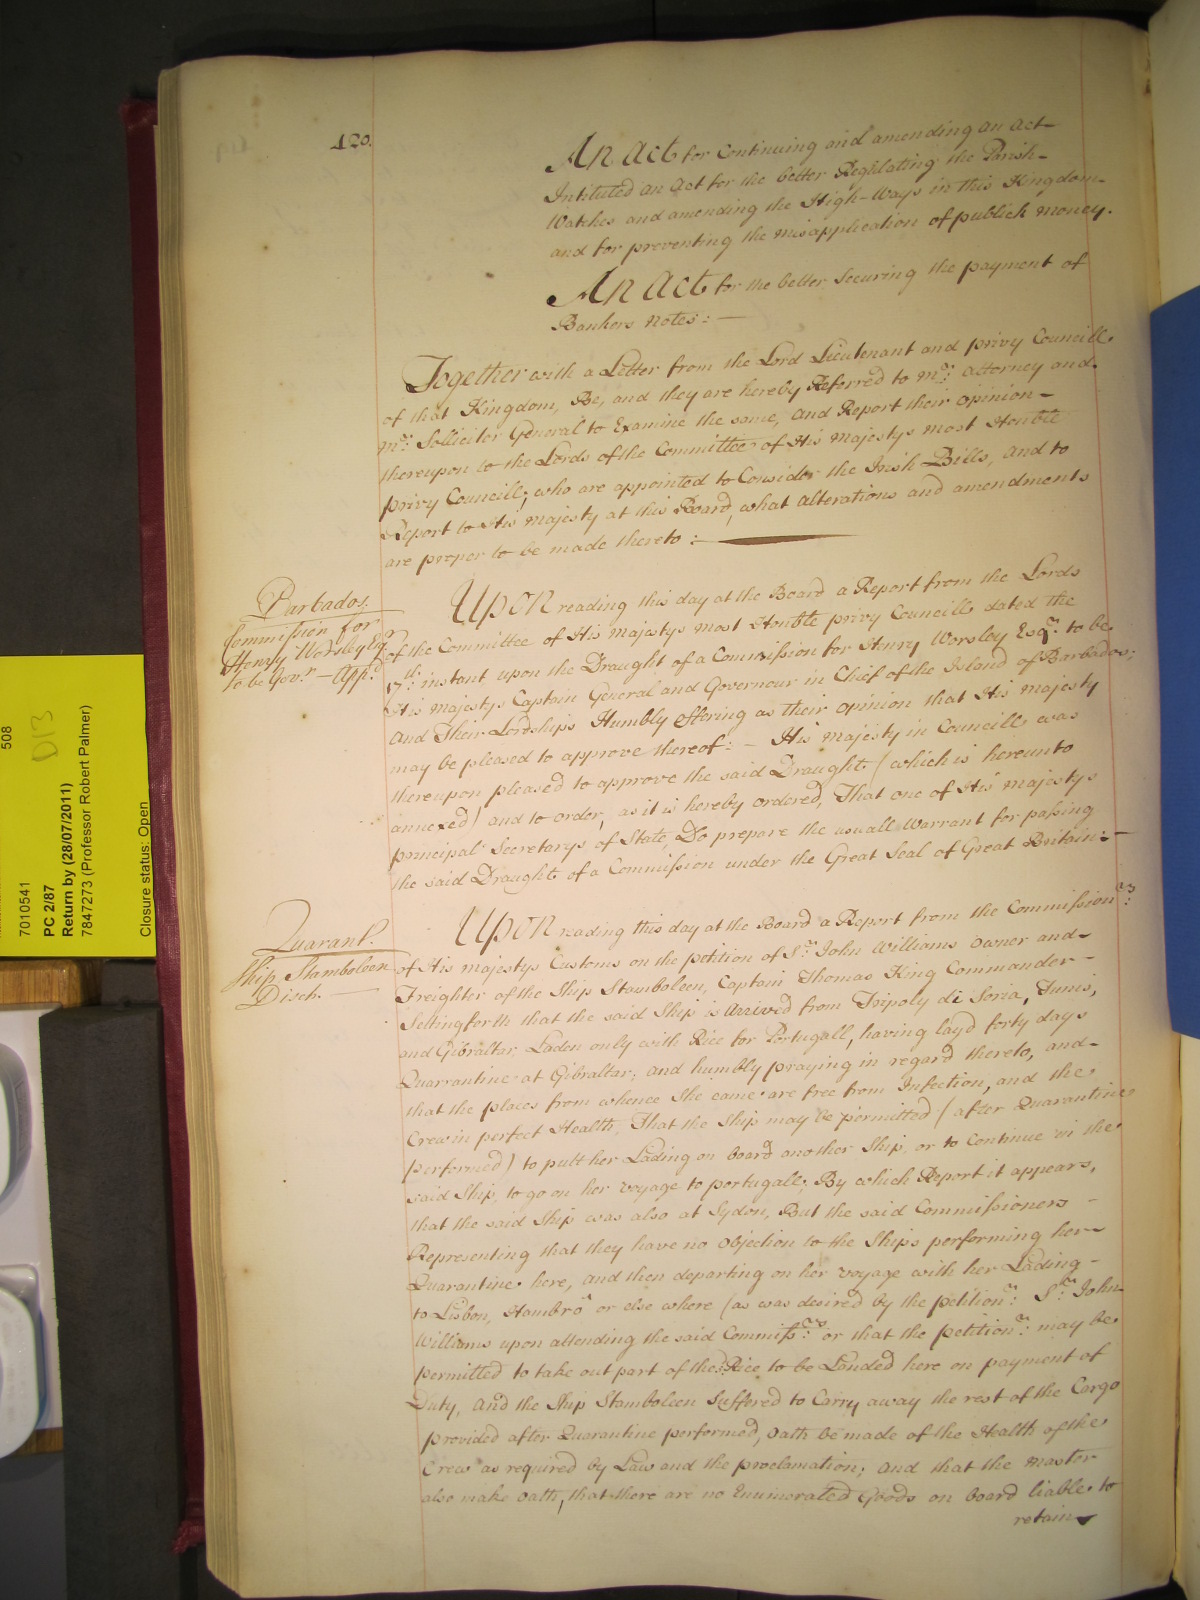 420.
An Act for Continuing and amending an Act
Intituled an Act for the better Regulating the Parish
Watches and amending the High-Ways in this Kingdom
and for preventing the misapplication of publick money.
An Act for the better Securing the payment of
Bankers notes: —
Together with a Letter from the Lord Lieutenant and privy Councill
of that Kingdom, Be, and they are hereby Referred to Mr. Attorney and
Mr. Sollicitor General to Examine the same, and Report their opinion
thereupon to the Lords of the Committee of His Majestys most Honble
privy Councill, who are appointed to Consider the Irish Bills, and to
Report to His Majesty at this Board, what alterations and amendments
are proper to be made thereto: —
Barbados.
Commission for
Henry Worsley Esqr.
to be Govr. — Appd.
Upon reading this day at the Board a Report from the Lords
of the Committee of His Majestys most Honble privy Councill dated the
17th. instant upon the Draught of a Commission for Henry Worsley Esqr. to be
His Majestys Captain General and Governour in Chief of the Island of Barbados;
and Their Lordships Humbly offering as their opinion that His Majesty
may be pleased to approve thereof: — His Majesty in Councill was
thereupon pleased to approve the said Draught (which is hereunto
annexed) and to order, as it is hereby ordered, That one of His Majestys
principal Secretarys of State, Do prepare the usuall Warrant for passing
the said Draught of a Commission under the Great Seal of Great Britain: —
Quarant.
Ship Stamboleen
Disch. —
Upon reading this day at the Board a Report from the Commissionrs.
of His Majestys Customs on the petition of Sr. John Williams owner and
Freighter of the Ship Stamboleen, Captain Thomas King Commander —
Setting forth that the said Ship is Arrived from Tripoly di Soria, Tunis,
and Gibraltar, Laden only with Rice for Portugall, having layd forty days
Quarrantine at Gibraltar; and humbly praying in regard thereto, and
that the places from whence She came are free from Infection, and the
Crew in perfect Health, That the Ship may be permitted (after Quarantine
performed) to putt her Lading on board another Ship, or to Continue in the
said Ship, to go on her voyage to portugall; By which Report it appears,
that the said Ship was also at Sydon, But the said Commissioners —
Representing that they have no Objection to the Ships performing her
Quarantine here, and then departing on her voyage with her Lading —
to Lisbon, Hambro' or else where (as was desired by the petitionr. Sr. John
Williams upon attending the said Commissrs. or that the petitionr. may be
permitted to take out part of the Rice to be Landed here on payment of
Duty, and the Ship Stamboleen Suffered to Carry away the rest of the Cargo
provided after Quarantine performed, oath be made of the Health of the
Crew as required by Law and the proclamation; and that the master
also make oath, that there are no Enumerated Goods on board liable to
retain
508
D13
7010541
PC 2/87
Return by (28/07/2011)
7847273 (Professor Robert Palmer)
Closure status: Open